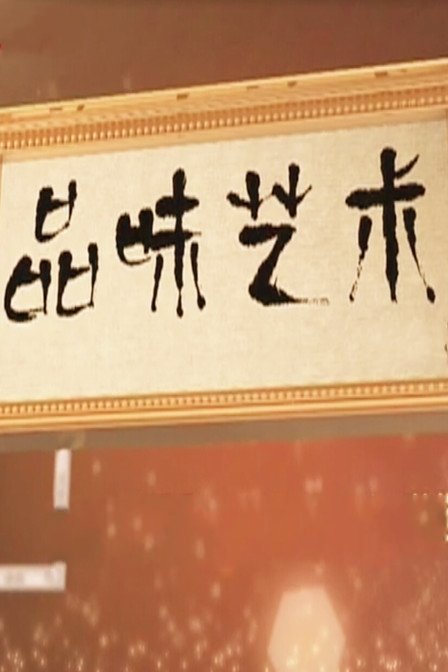 品味艺术